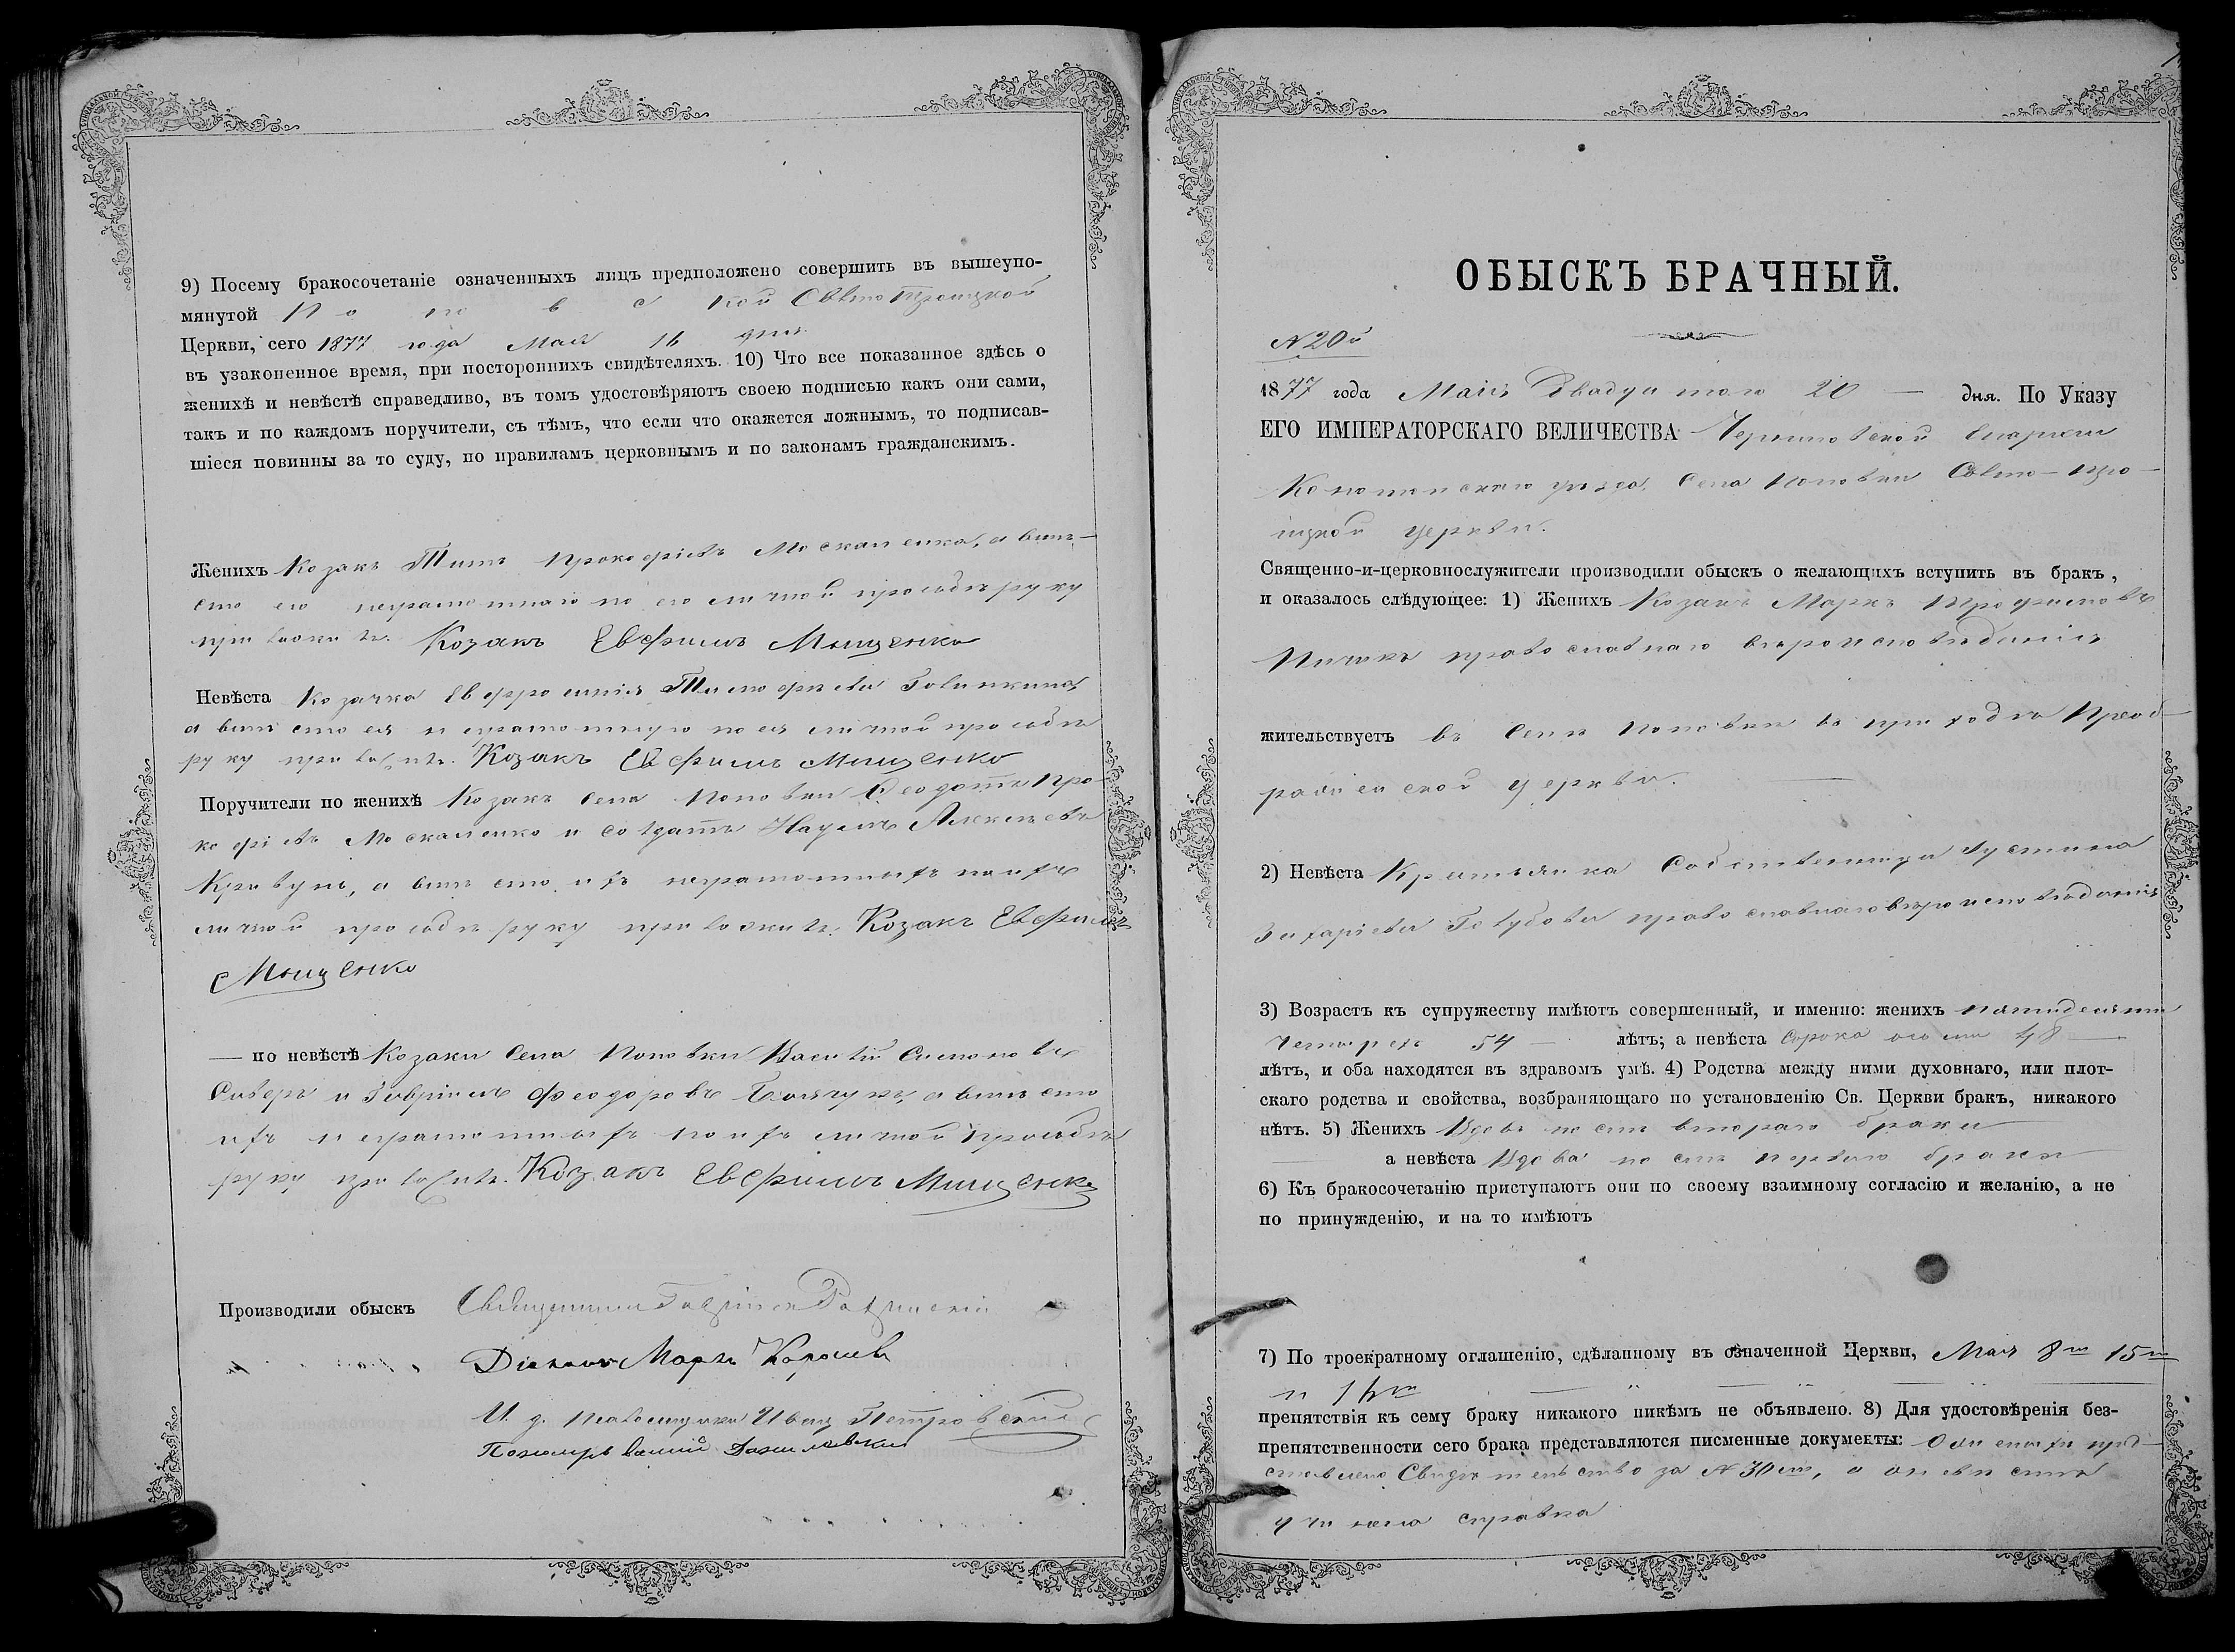 9) Посему бракосочетаніе означенныхъ лицъ предположено совершить въ вышеупо-
мянутой По по в с кой Свято Троицкой
Церкви, сего 1877 года Мая 16 дня
въ узаконенное время, при постороннихъ свидѣтеляхъ. 10) Что все показанное здѣсь о
женихѣ и невѣстѣ справедливо, въ томъ удостовѣряютъ своею подписью какъ они сами,
такъ и по каждомъ поручители, съ тѣмъ, что если что окажется ложнымъ, то подписав-
шіеся повинны за то суду, по правиламъ церковнымъ и по законамъ гражданскимъ.
Женихъ Козакъ Титъ Прокофіевъ Москаленко, а вмѣ-
сто его неграмотнаго по его личной просьбѣ руку
приложилъ. Козакъ Евфимъ Мищенко
Невѣста Козачка Евфросинія Тимофеева
а вмѣсто ея неграмотную по ея личной просьбѣ
руку приложилъ. Козакъ Евфимъ Мищенко
Поручители по женихѣ Козакъ Села Поповки Феодотъ Про-
кофіевъ Москаленко и солдатъ Наумъ Алексѣевъ
Кривунъ, а вмѣсто ихъ неграмотныхъ по ихъ
личной просьбѣ руку приложилъ. Козакъ Евфимъ
Мищенко
— по невѣстѣ Козаки Села Поповки Василій Симоновъ
и Гавріилъ Феодоровъ а вмѣсто
ихъ неграмотныхъ по ихъ личной просьбѣ
руку приложилъ. Козакъ Евфимъ Мищенко
Производили обыскъ Священникъ Гавріилъ
Діаконъ Маркъ Королевъ
И. д. псаломщика Иванъ Петровскій
ОБЫСКЪ БРАЧНЫЙ.
N 20й
1877 года Маія Двадцатого 20 — дня. По Указу
ЕГО ИМПЕРАТОРСКАГО ВЕЛИЧЕСТВА Черниговской Епархіи
Конотопского уѣзда, Села Поповки Свято-Тро-
ицкой церкви.
Священно-и-церковнослужители производили обыскъ о желающихъ вступить въ бракъ,
и оказалось слѣдующее: 1) Женихъ Козакъ Маркъ Трофимовъ
православнаго вѣроисповѣданія
жительствуетъ въ Селѣ Поповки въ приходѣ Преоб-
раженской церкви.
2) Невѣста Крестьянка Собственница Іустина
Захаріева Голубова православнаго вѣроисповѣданія
3) Возрастъ къ супружеству имѣютъ совершенный, и именно: женихъ пятидесяти
четырехъ 54 — лѣтъ; а невѣста сорока осьми 48
лѣтъ, и оба находятся въ здравомъ умѣ. 4) Родства между ними духовнаго, или плот-
скаго родства и свойства, возбраняющаго по установленію Св. Церкви бракъ, никакого
нѣтъ. 5) Женихъ Вдовъ послѣ втораго брака
а невѣста Вдова послѣ перваго брака
6) Къ бракосочетанію приступаютъ они по своему взаимному согласію и желанію, а не
по принужденію, и на то имѣютъ
7) По троекратному оглашенію, сдѣланному въ означенной Церкви, Мая 8го 15го
и 16го
препятствія къ сему браку никакого никѣмъ не объявлено. 8) Для удостовѣренія без-
препятственности сего брака представляются писменные документы: О женихѣ пред-
ставлено Свидѣтельство за N 30мъ, а о невѣстѣ
учинена справка